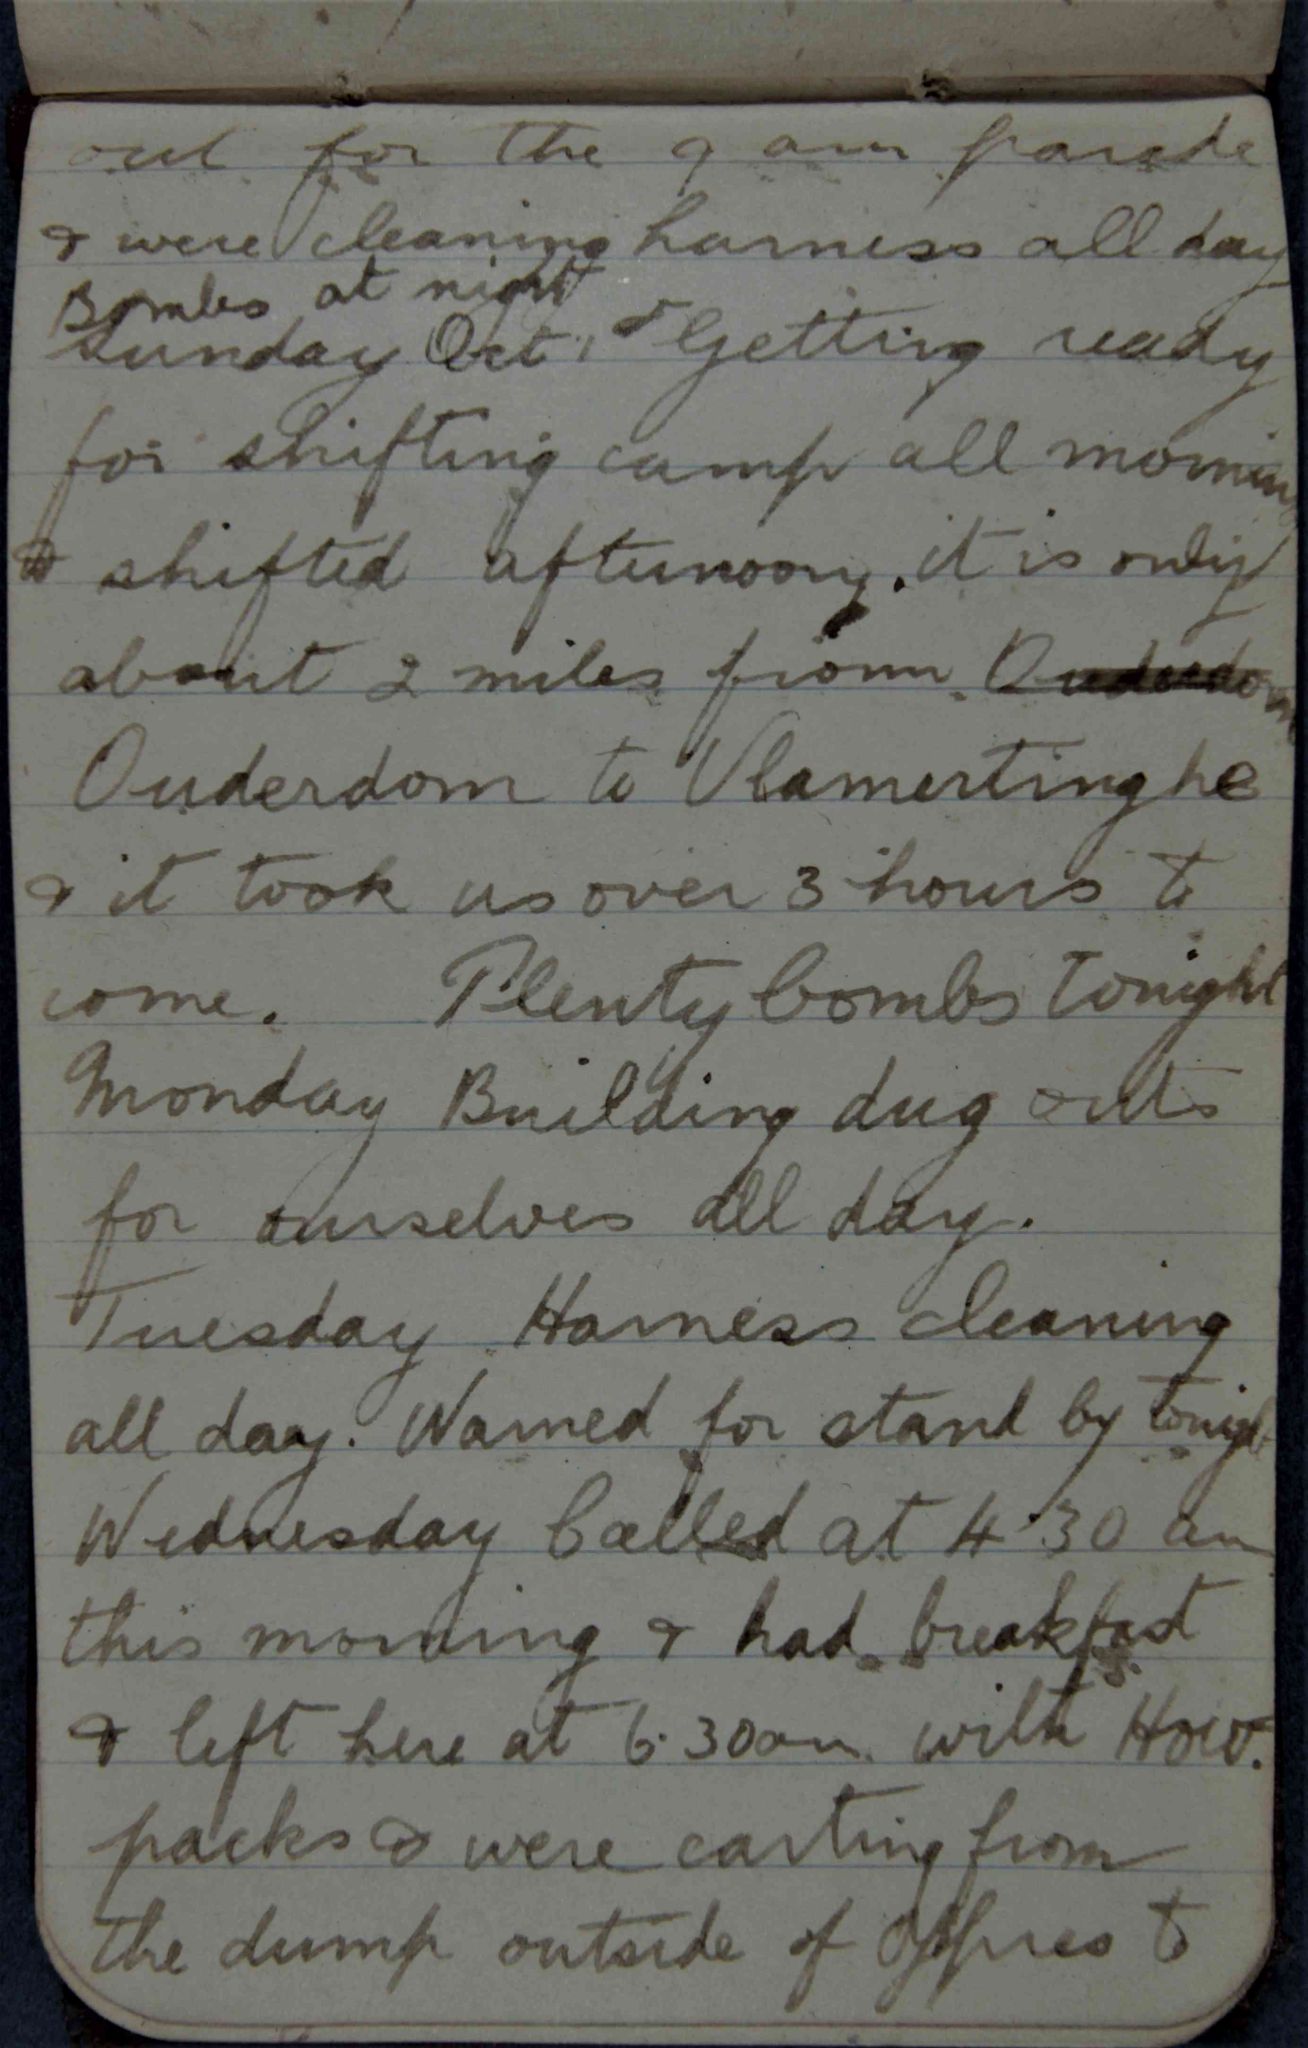 out for the 9 am parade
& were cleaning harness all day
Bombs at night
Sunday Oct 1st Getting ready
for shifting camp all morning
& shifted afternoon. it is only
about 2 miles from Ouderdom
Ouderdom to Vlamertinghe
& it took us over 3 hours to
come. Plenty bombs tonight
Monday Building dug outs
for ourselves all day.
Tuesday Harness cleaning
all day. Warned for stand by tonight
Wednesday Called at 4.30 am
this morning & had breakfast
& left here at 6.30 am. with How.
packs & were carting from
the dump outside of Yppres to